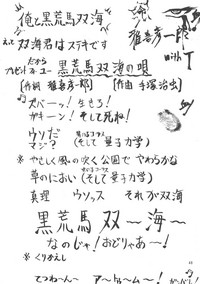 "俺と黒荒馬双海"
雅彦一郎
with T
双海君はステキです
だから
プレゼントフォーユー 黒荒馬双海の唄
[作詞 雅彦一郎] [作曲 手塚治虫]
ズバーッ!生きろ!
ガキーン!そして死ね!
ウソだ
マジ? (そして量子力学)
※やさしく風の吹く公園で やわらかな
草のにおい (そして量子力学)
真理 ウソップ それが双海
黒荒馬双〜海〜
なのじゃ!おどりゃあ〜!
※くりかえし
てつわん〜 ア〜トム〜!